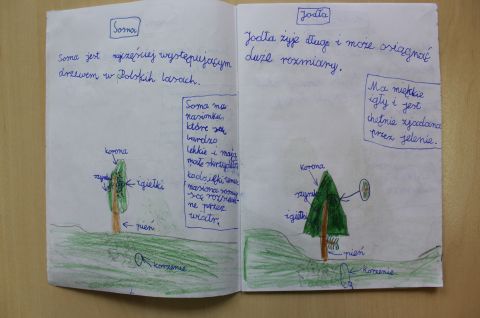 Sosna
Sosna jest najczęściej występującym
drzewem w Polskich lasach.
Sosna ma
nasionka,
które są
bardzo
lekkie i mają
małe skrzydła
nasiona
przez
wiatr.
korona
igiełki
pień
korzenie
Jodła
Jodła żyje długo i może osiągnąć
duże rozmiary.
Ma miękkie
igły i jest
chętnie zjadana
przez jelenie.
korona
szyszki
igiełki
pień
korzenie